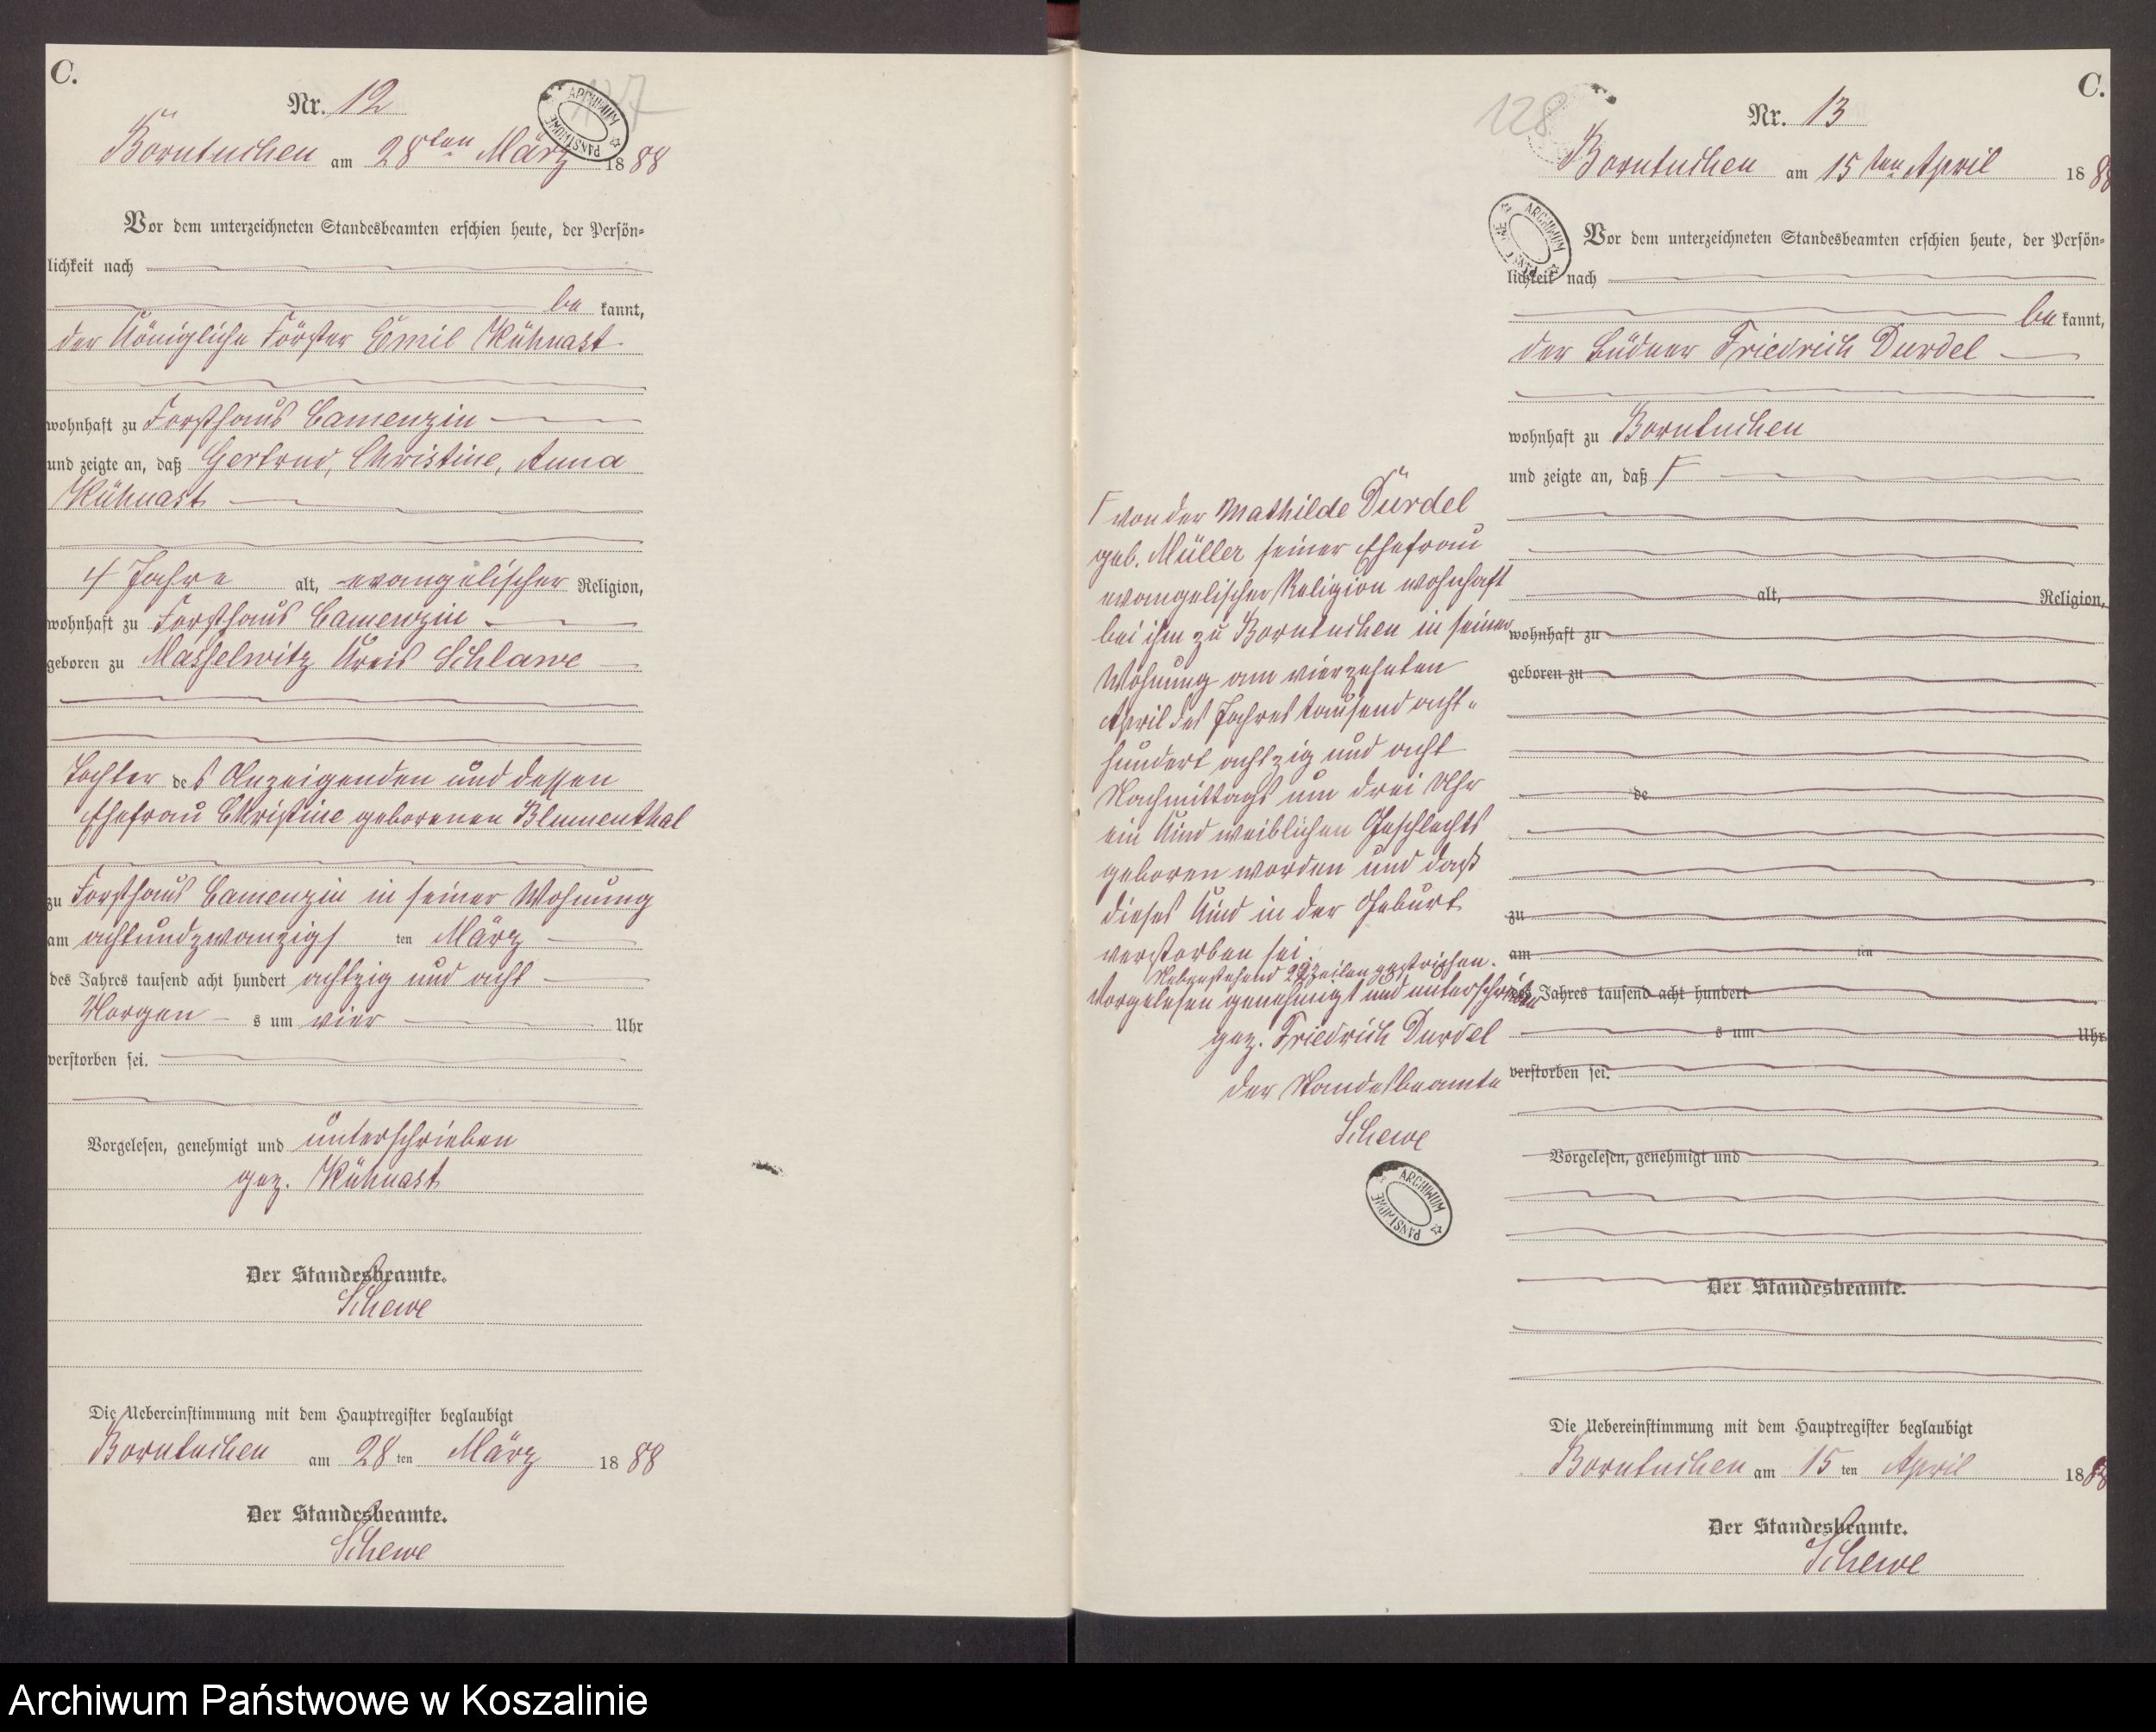 C.
Nr. 12
127
ARCHIWUM PAŃSTWOWE
Borntuchen am 28ten März 1888
Vor dem unterzeichneten Standesbeamten erschien heute, der Persön-
lichkeit nach
be kannt,
der Königliche Förster Emil Kühnast
wohnhaft zu Forsthaus Camenzin
und zeigte an, daß Gertrud, Christine, Anna
Kühnast
4 Jahre alt, evangelischer Religion,
wohnhaft zu Forsthaus Camenzin
geboren zu Masselwitz Kreis Schlawe
Tochter des Anzeigenden und dessen
Ehefrau Christine geborenen Blumenthal
zu Forsthaus Camenzin in seiner Wohnung
am achtundzwanzigs ten März
des Jahres tausend acht hundert achtzig und acht
Morgen s um vier Uhr
verstorben sei.
Vorgelesen, genehmigt und unterschrieben
gez. Kühnast
Der Standesbeamte.
Schewe
Die Uebereinstimmung mit dem Hauptregister beglaubigt
Borntuchen am 28 ten März 1888
Der Standesbeamte.
Schewe
C.
128
Nr. 13
Borntuchen am 15ten April 1888
ARCHIWUM
Vor dem unterzeichneten Standesbeamten erschien heute, der Persön-
lichkeit nach
be kannt,
der Büdner Friedrich Durdel
wohnhaft zu Borntuchen
und zeigte an, daß F
F von der Mathilde Durdel
geb. Müller seiner Ehefrau
evangelischer Religion wohnhaft
bei ihm zu Borntuchen in seiner
Wohnung am vierzehnten
April des Jahres tausend acht-
hundert achtzig und acht
Nachmittags um drei Uhr
ein Kind weiblichen Geschlechts
geboren worden und daß
dieses Kind in der Geburt
verstorben sei.
Nebenstehend Zeilen gestrichen.
Vorgelesen genehmigt und unterschrieben
gez. Friedrich Durdel
der Standesbeamte
Schewe
ARCHIWUM PAŃSTWOWE
alt, Religion,
wohnhaft zu
geboren zu
de
zu
am ten
des Jahres tausend acht hundert
s um Uhr
verstorben sei.
Vorgelesen, genehmigt und
Der Standesbeamte.
Die Uebereinstimmung mit dem Hauptregister beglaubigt
Borntuchen am 15 ten April 1888
Der Standesbeamte.
Schewe
Archiwum Państwowe w Koszalinie